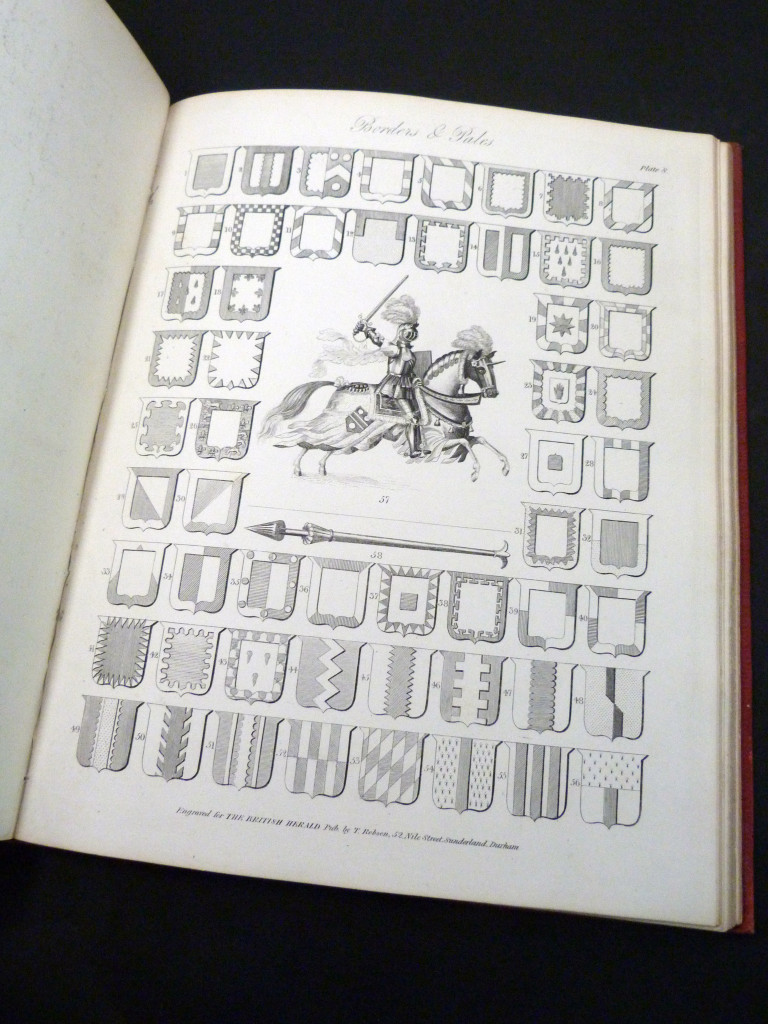 Borders & Pales
Plate
1 2 3 4 5 6 7 8
9 10 11 12 13 14 15 16
17 18 19 20
21 22 23 24
25 26 27 28
57
29 30 31 32
58
33 34 35 36 37 38 39 40
41 42 43 44 45 46 47 48
49 50 51 52 53 54 55 56
Engraved for THE BRITISH HERALD Pub. by T. Robson, 52, Nile Street, Sunderland, Durham